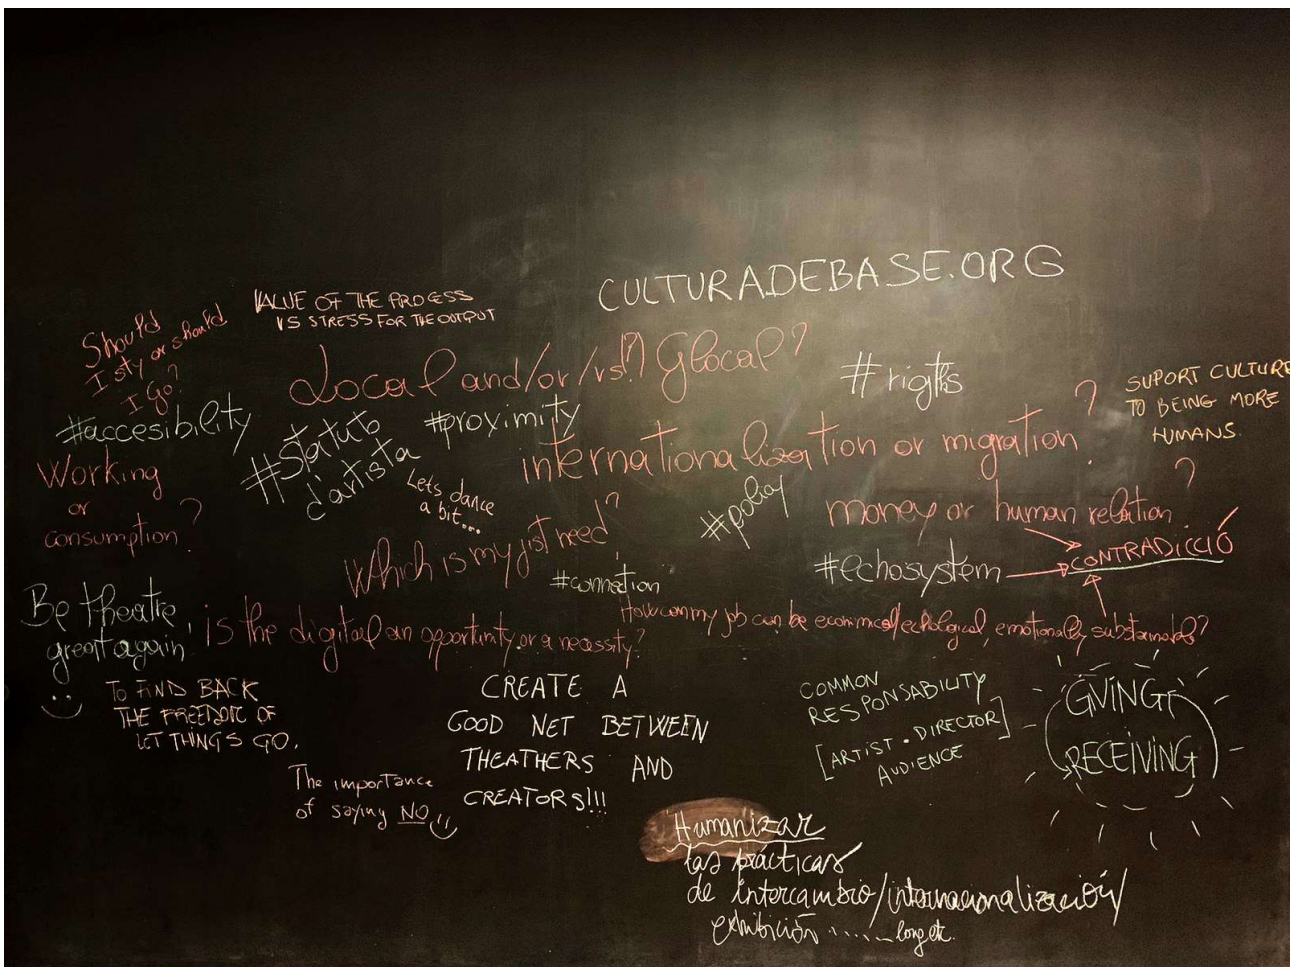 CULTURADEBASE.ORG
VALUE OF THE PROCESS
VS STRESS FOR THE OUTPUT
Should
I sty or should
I go?
Local and/or/vs(?) Glocal?
#rigths
SUPORT CULTURE
TO BEING MORE
HUMANS.
#accesibility
#statub
d'artista
#proximity
internationalization or migration?
Working
or
consumption?
Lets dance
a bit...
#policy
money or human relation?
Which is my jist need?
#connetion
#echosystem
CONTRADICCIÓ
Be theatre,
great again
is the digital an opportunity or a necessity?
How can my job can be economical/echological, emotionally substainable?
TO FIND BACK
THE FREEDOM OF
LET THINGS GO.
CREATE A
GOOD NET BETWEEN
THEATHERS AND
CREATORS!!!
COMMON
RESPONSABILITY
[ARTIST • DIRECTOR]
AUDIENCE
GIVING
RECEIVING
The importance
of saying NO!!
Humanizar
las prácticas
de intercambio/internacionalización/
exhibición ....... long etc.